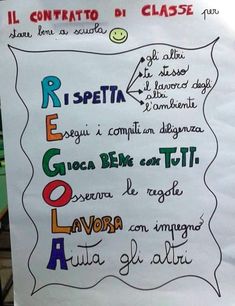 IL CONTRATTO DI CLASSE per
stare bene a scuola
RISPETTA
gli altri
te stesso
il lavoro degli
altri
l'ambiente
Esegui i compiti con diligenza
GIOCA BENE con TUTTI
Osserva le regole
LAVORA con impegno
Aiuta gli altri